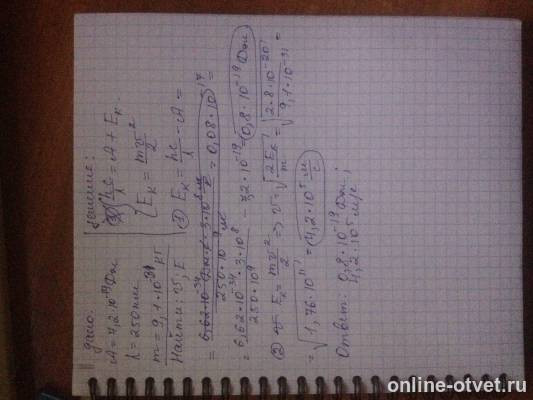 дано:
A = 7,2·10⁻¹⁹ Дж
λ = 250 нм
m = 9,1·10⁻³¹ кг
Найти: v, E
решение:
hc/λ = A + Eк
Eк = mv²/2
① Eк = hc/λ - A =
= 6,62·10⁻³⁴ Дж·с·3·10⁸ м/с / 250·10⁻⁹ м = 0,08·10¹⁷ =
= 6,62·10⁻³⁴·3·10⁸ / 250·10⁹ - 7,2·10⁻¹⁹ = 0,8·10⁻¹⁹ Дж
② Eк = mv²/2 => v = √(2Eк/m) = √(2·8·10⁻²⁰ / 9,1·10⁻³¹) =
= √(1,76·10¹¹) = 4,2·10⁵ м/с
Ответ: 0,8·10⁻¹⁹ Дж;
4,2·10⁵ м/с
online-otvet.ru